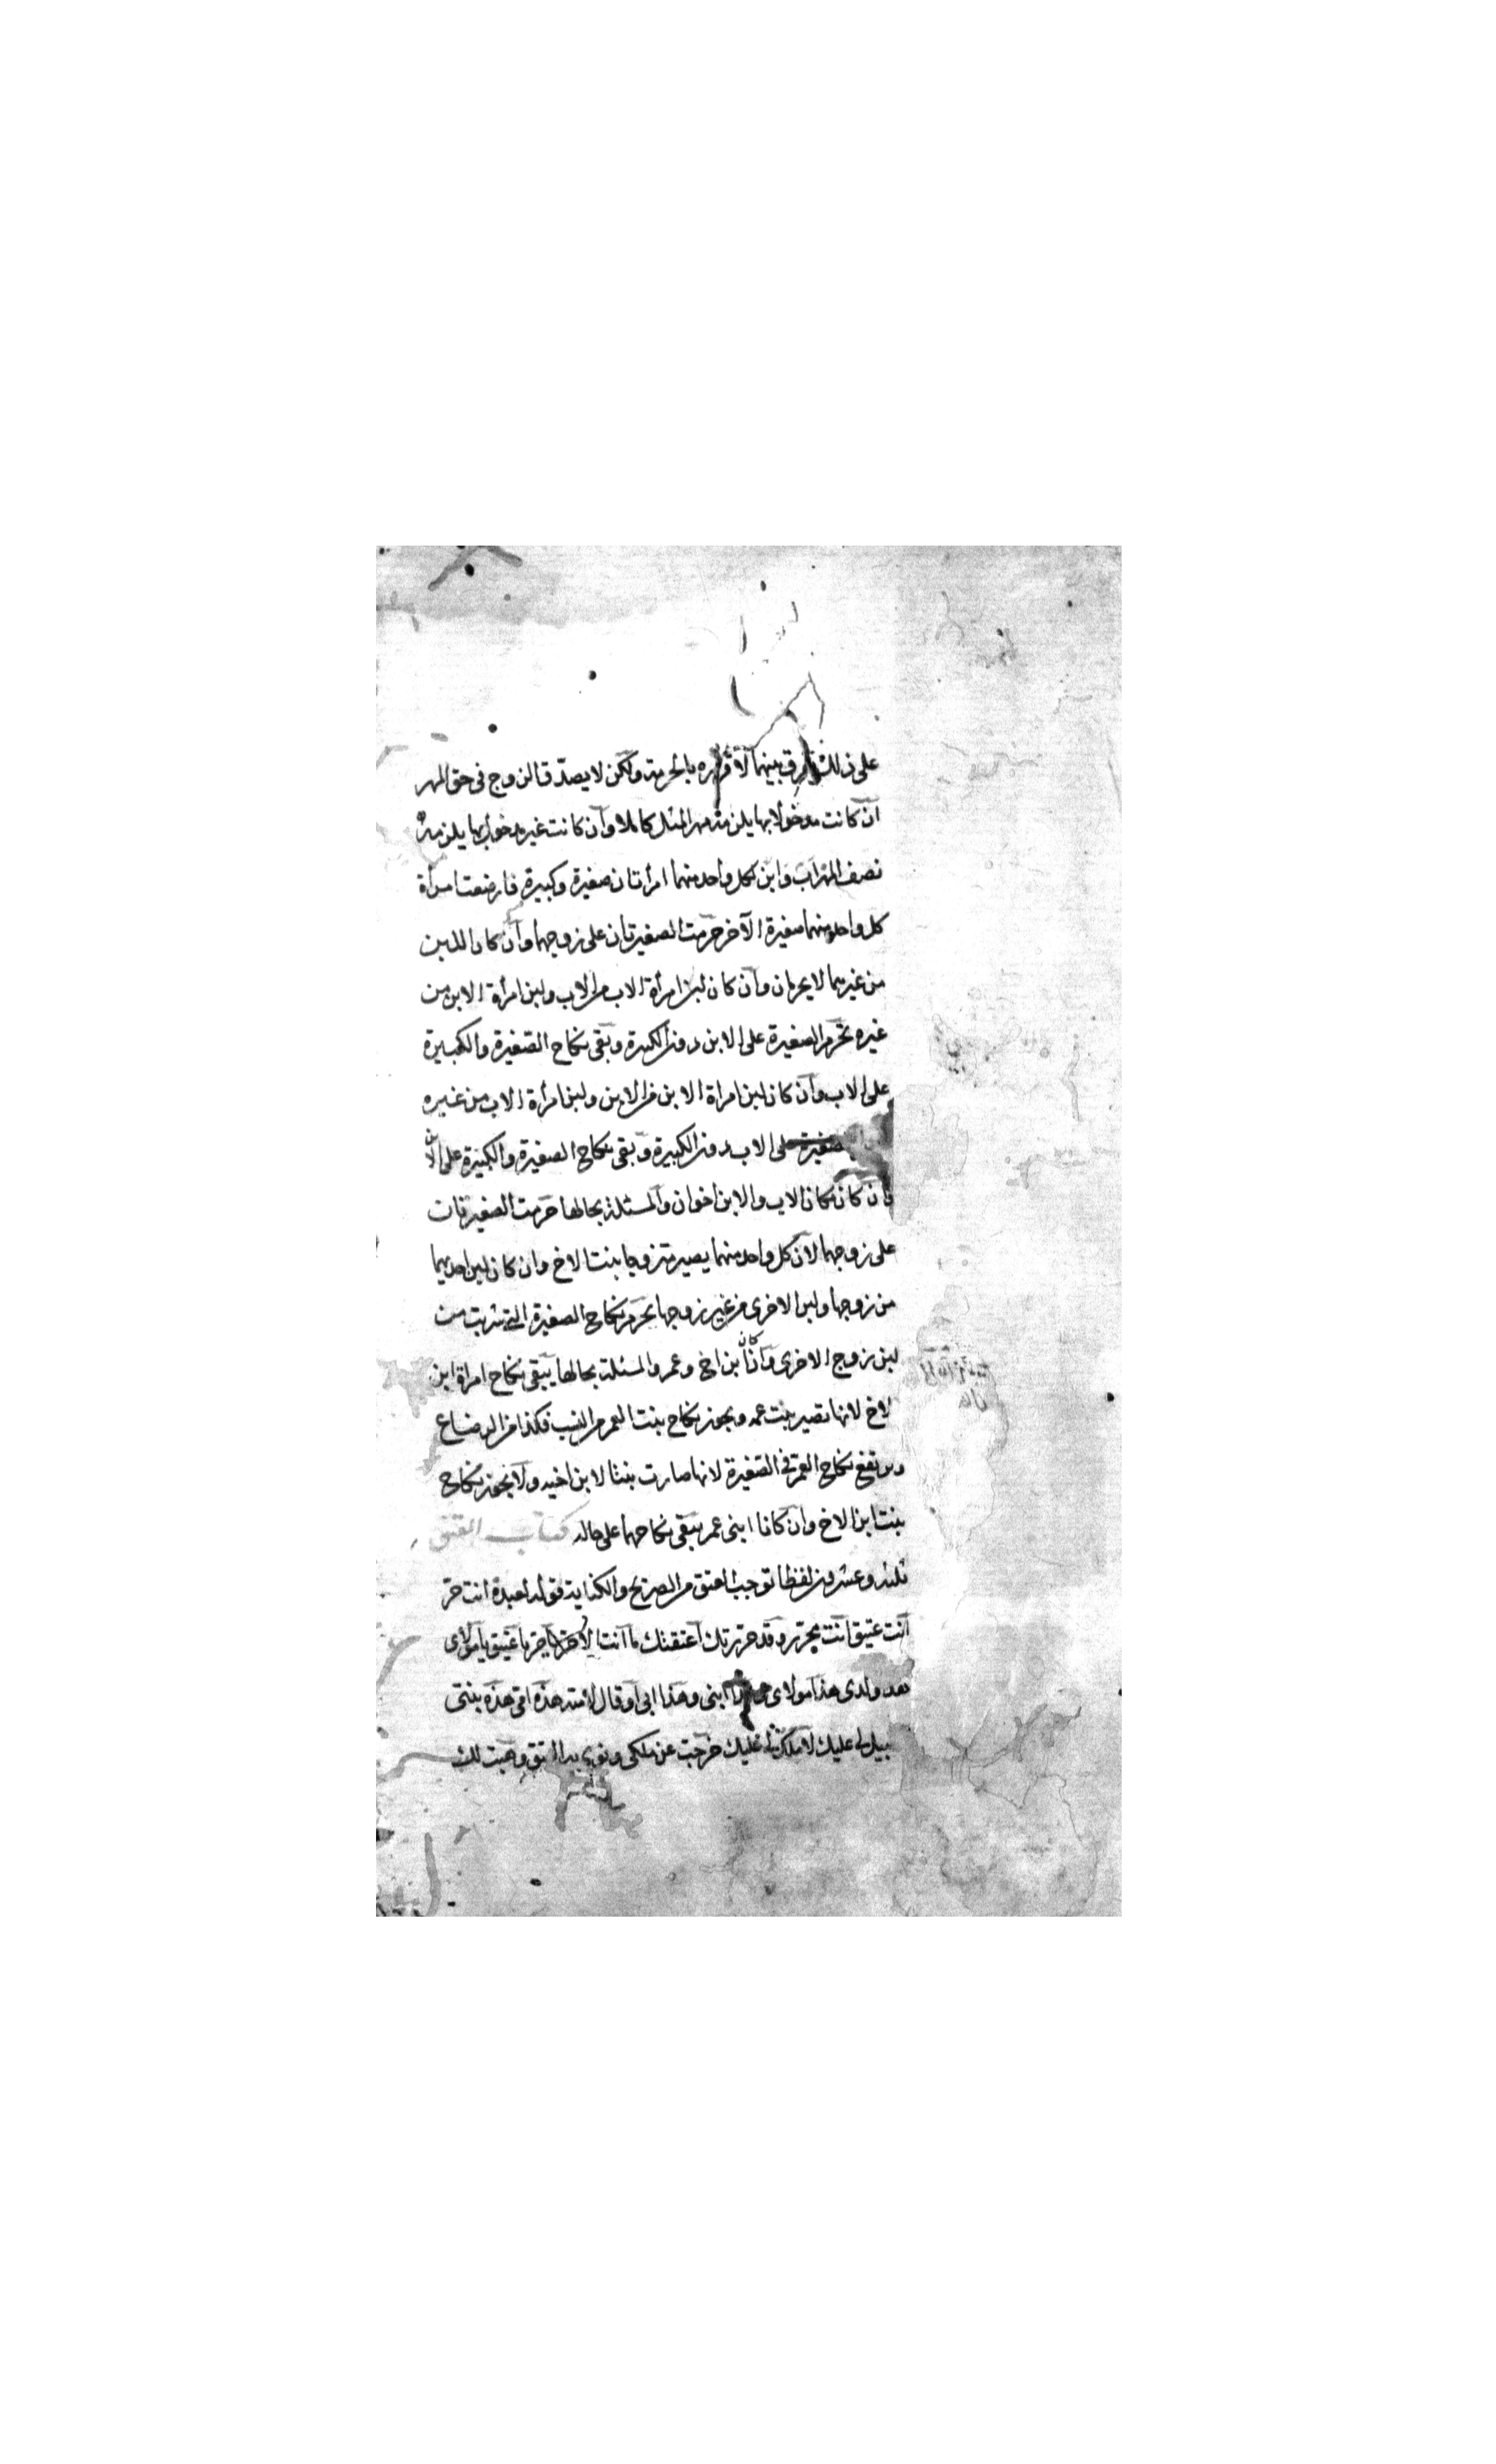 على ذلك فرق بينهما لاقراره بالحرمة ولكن لا يصدق الزوج فى حق المهر
ان كانت مدخولا بها يلزمه مهر المثل كاملا وان كانت غير مدخول بها يلزمه
نصف المهر اب وابن لكل واحد منهما امرأتان صغيرة وكبيرة فارضعت امرأة
كل واحد منهما صغيرة الآخر حرمت الصغيرتان على زوجهما وان كان اللبن
من غيرهما لا يحرمان وان كان لبن امرأة الاب من الاب ولبن امرأة الابن من
غيره تحرم الصغيرة على الابن دون الكبيرة وبقى نكاح الصغيرة والكبيرة
على الاب وان كان لبن امراة الابن من الابن ولبن امرأة الاب من غيره
الصغيرة على الاب دون الكبيرة وبقى نكاح الصغيرة والكبيرة على الابن
وان كان مكان الاب والابن اخوان والمسئلة بحالها حرمت الصغيرتان
على زوجهما لان كل واحد منهما يصير متزوجا بنت الاخ وان كان لبن احديهما
من زوجها ولبن الاخرى من غير زوجها يحرم نكاح الصغيرة التى شربت من
لبن زوج الاخرى وان كانا ابن اخ وعم والمسئلة بحالها يبقى نكاح امراة ابن
الاخ لانها تصير بنت عمه ويجوز نكاح بنت العم من النسب فكذا من الرضاع
ويرتفع نكاح العم فى الصغيرة لانها صارت بنتا لابن اخيه ولا يجوز نكاح
بنت ابن الاخ وان كانا ابنى عم يبقى نكاحهما على حاله كتاب العتق
ثلثه وعشرون لفظا توجب العتق من الصريح والكناية قوله لعبده انت حر
انت عتيق انت محرر وقد حررتك اعتقتك ما انت الا حر يا حر يا عتيق يا مولاى
هذا ولدى هذا مولاى هذا ابنى وهذا ابى او قال لامته هذه امى هذه بنتى
سبيل لى عليك لا ملك لى عليك خرجت عن ملكى ونوى به العتق وهبت لك